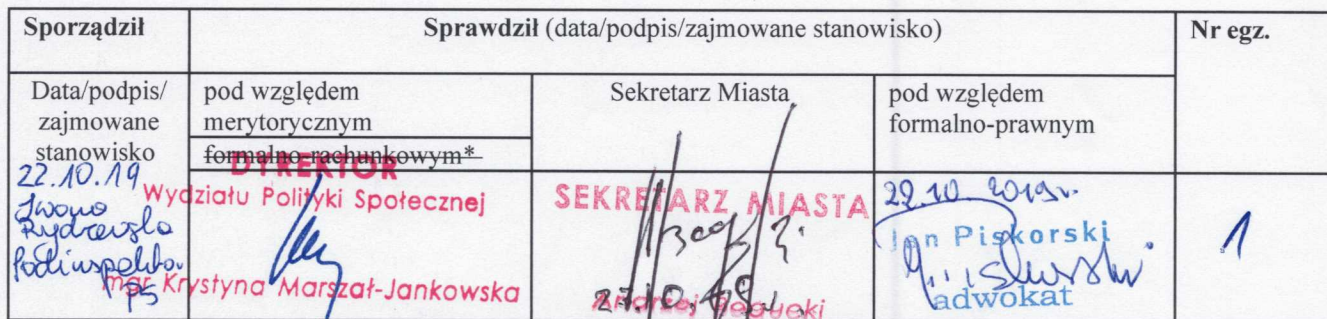 Sporządził
Sprawdził (data/podpis/zajmowane stanowisko)
Nr egz.
Data/podpis/
zajmowane
stanowisko
pod względem
merytorycznym
formalno-rachunkowym*
Sekretarz Miasta
pod względem
formalno-prawnym
22.10.19
Iwona
Podinspektor
PS
DYREKTOR
Wydziału Polityki Społecznej
mgr Krystyna Marszał-Jankowska
SEKRETARZ MIASTA
Andrzej
22.10.2019r.
Jan Piskorski
adwokat
1